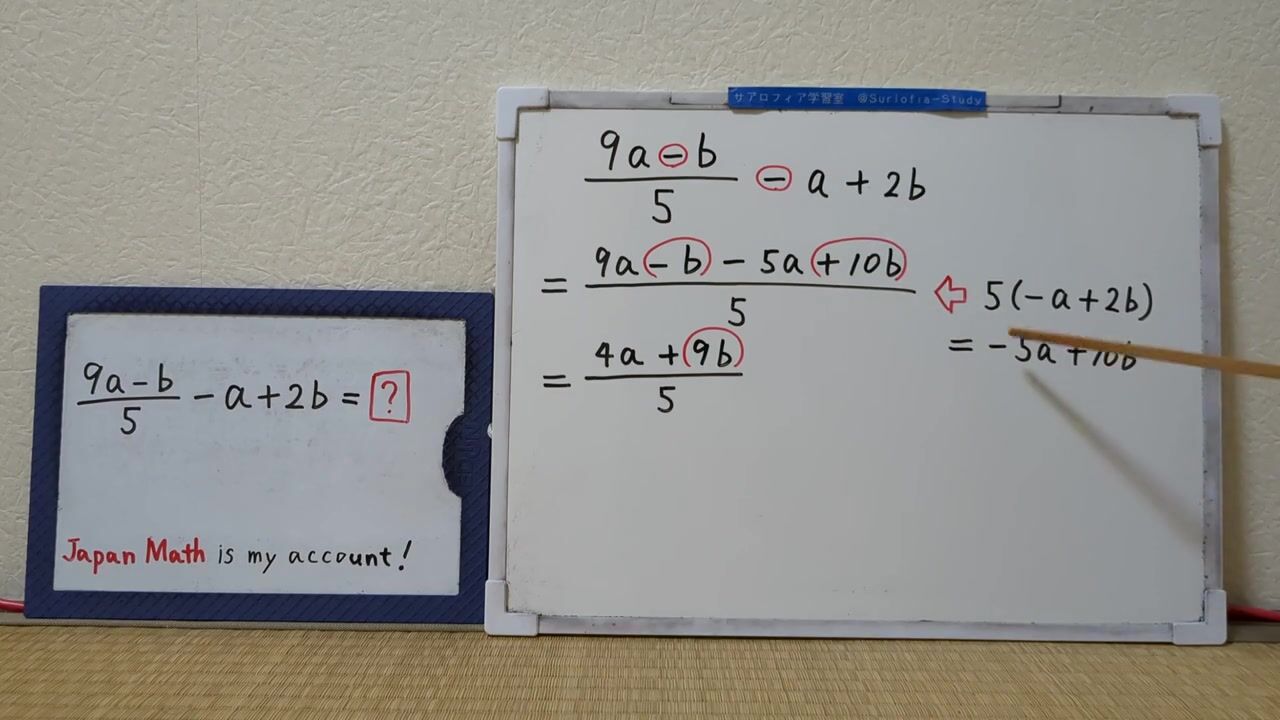 サアロフィア学習室 @Surlofia-Study
(9a-b)/5 - a + 2b
= (9a(-b) - 5a(+10b))/5 ⇦ 5(-a+2b)
= -5a+10b
= (4a +(9b))/5
(9a-b)/5 - a+2b = ?
Japan Math is my account!